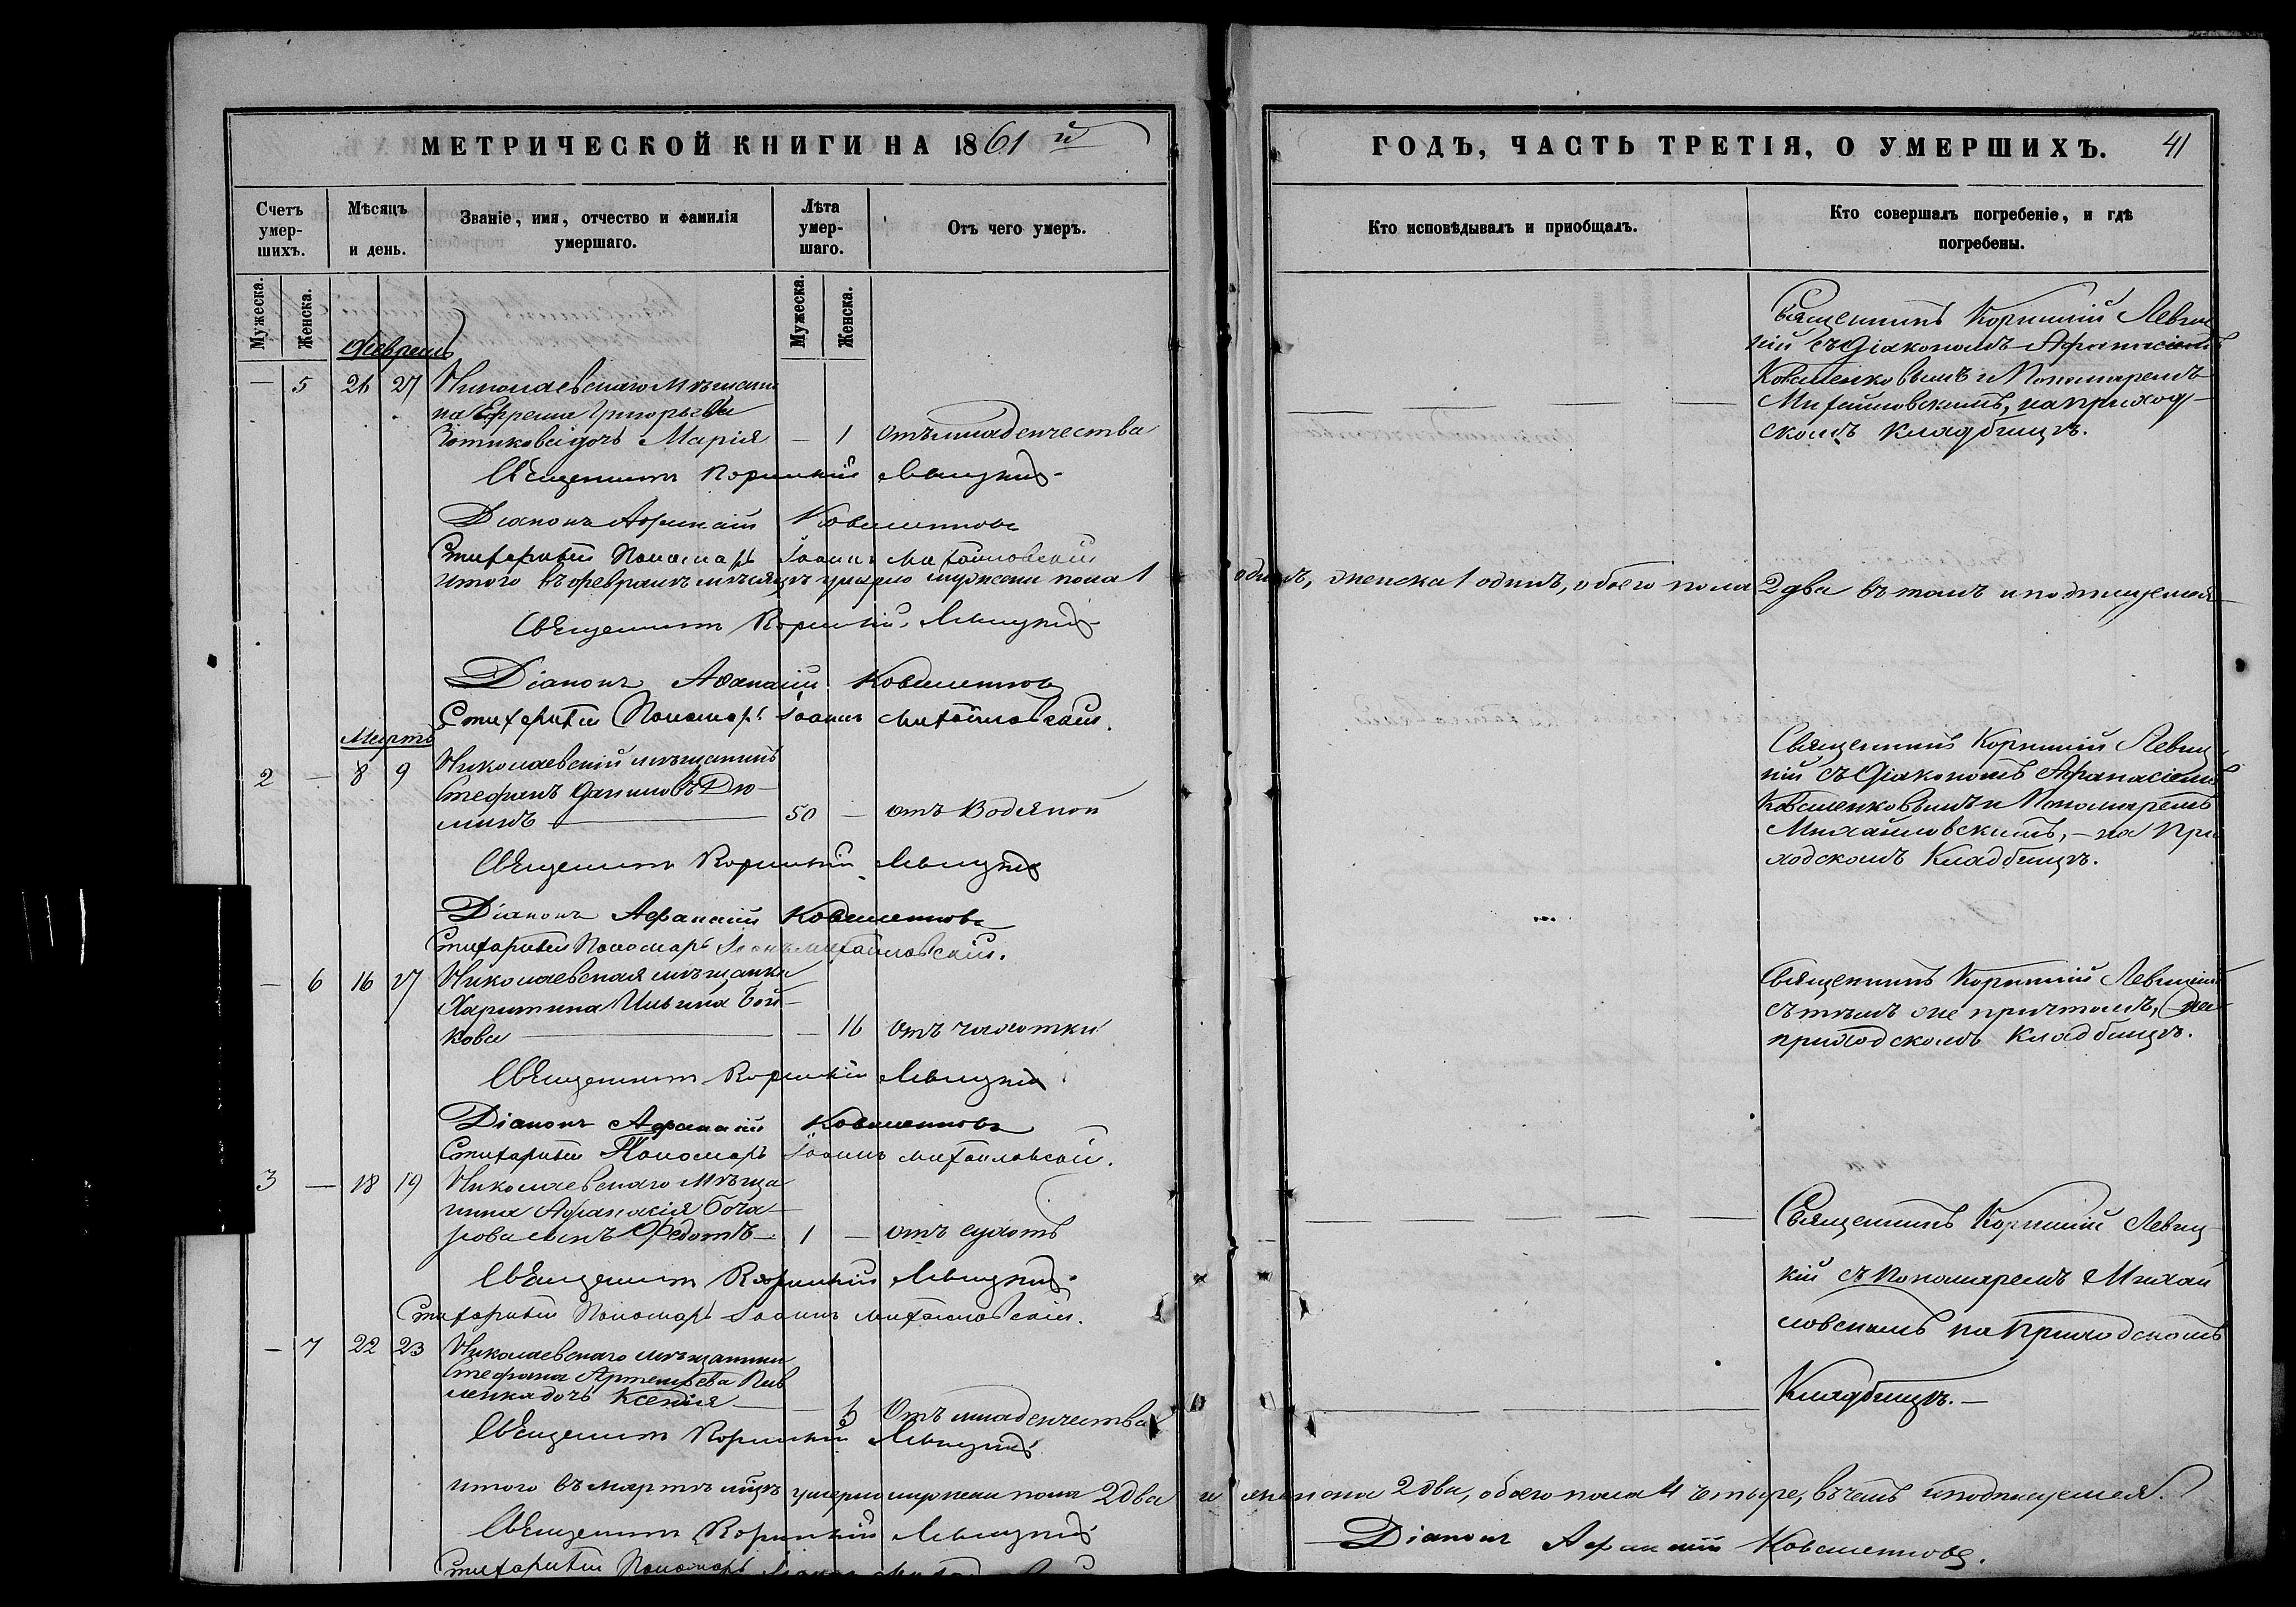 МЕТРИЧЕСКОЙ КНИГИ НА 1861й
ГОДЪ, ЧАСТЬ ТРЕТІЯ, О УМЕРШИХЪ. 41
Счетъ умер-шихъ.
Мѣсяцъ и день.
Званіе, имя, отчество и фамилія умершаго.
Лѣта умер-шаго.
Отъ чего умеръ.
Кто исповѣдывалъ и приобщалъ.
Кто совершалъ погребеніе, и гдѣ погребены.
Мужеска.
Женска.
Мужеска.
Женска.
Февраль
— 5 26 27 Николаевскаго мѣщани
на Ефрема Григорьева
дочь Марія — 1 Отъ младенчества
Священникъ Корнилій Левиц
кій съ Діакономъ Афанасіемъ
Ковшенковымъ и Пономаремъ
Михайловскимъ, на приход-
скомъ кладбищѣ.
Священникъ Корнилій Левицкій
Діаконъ Афанасій Ковшенковъ
Стихарный Пономарь Іоаннъ Михайловскій
Итого въ февралѣ мѣсяцѣ умерло мужеска пола 1 одинъ, женска 1 одинъ, обоего пола 2 два въ томъ и подпишемся
Священникъ Корнилій Левицкій
Діаконъ Афанасій Ковшенковъ
Стихарный Пономарь Іоаннъ Михайловскій.
Мартъ
2 — 8 9 Николаевскій мѣщанинъ
Стефанъ Даниловъ Дю-
минъ — 50 — отъ Водяной
Священникъ Корнилій Левиц
кій съ Діакономъ Афанасіемъ
Ковшенковымъ и Пономаремъ
Михайловскимъ, — на При
ходскомъ Кладбищѣ.
Священникъ Корнилій Левицкій
Діаконъ Афанасій Ковшенковъ
Стихарный Пономарь Іоаннъ Михайловскій.
— 6 16 17 Николаевская мѣщанка
Харитина Ильина Бой-
кова — — 16 Отъ чахотки
Священникъ Корнилій Левицкій
съ тѣмъ же причтомъ, на
приходскомъ Кладбищѣ.
Священникъ Корнилій Левицкій
Діаконъ Афанасій Ковшенковъ
Стихарный Пономарь Іоаннъ Михайловскій.
3 — 18 19 Николаевскаго мѣща
нина Афанасія Боча-
рова сынъ Федотъ — 1 — отъ сухотъ
Священникъ Корнилій Левиц-
кій съ Пономаремъ Михай
ловскимъ на Приходскомъ
Кладбищѣ. —
Священникъ Корнилій Левицкій
Стихарный Пономарь Іоаннъ Михайловскій.
— 7 22 23 Николаевскаго мѣщанина
Стефана Артемьева
дочь Ксенія — Отъ младенчества
Священникъ Корнилій Левицкій
Итого въ мартѣ мцѣ умерло мужеска пола 2 два и женска 2 два, обоего пола 4 четыре, въ чемъ и подпишемся.
Священникъ Корнилій Левицкій
Діаконъ Афанасій Ковшенковъ.
Стихарный Пономарь Іоаннъ